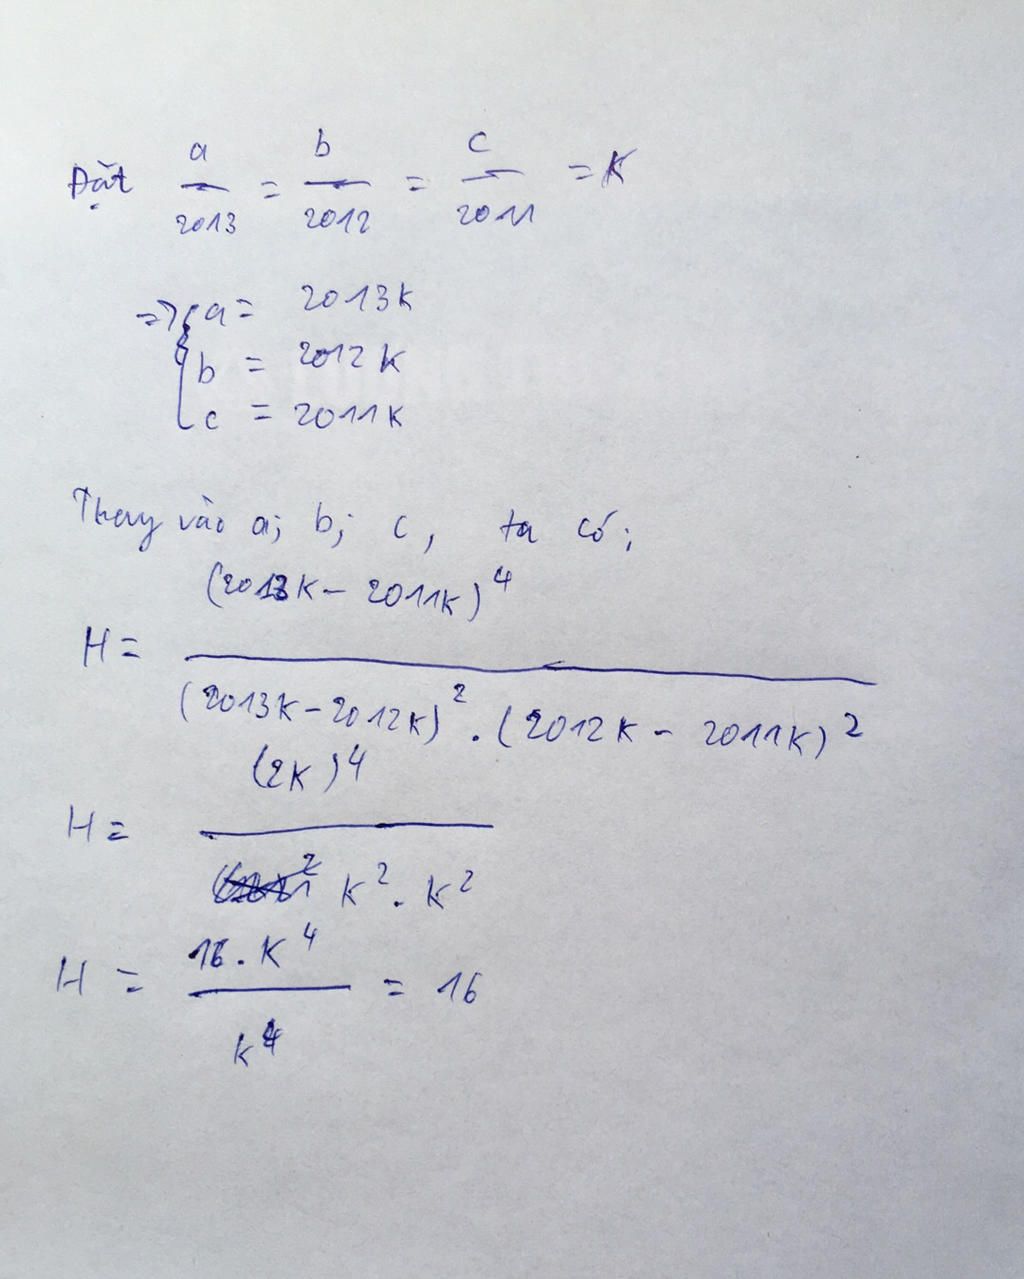 Đặt a/2013 = b/2012 = c/2011 = K
=> { a = 2013K
b = 2012K
c = 2011K
Thay vào a; b; c, ta có;
H = (2013K - 2011K)^4 / (2013K - 2012K)^2 . (2012K - 2011K)^2
H = (2K)^4 / K^2 . K^2
H = 16.K^4 / K^4 = 16